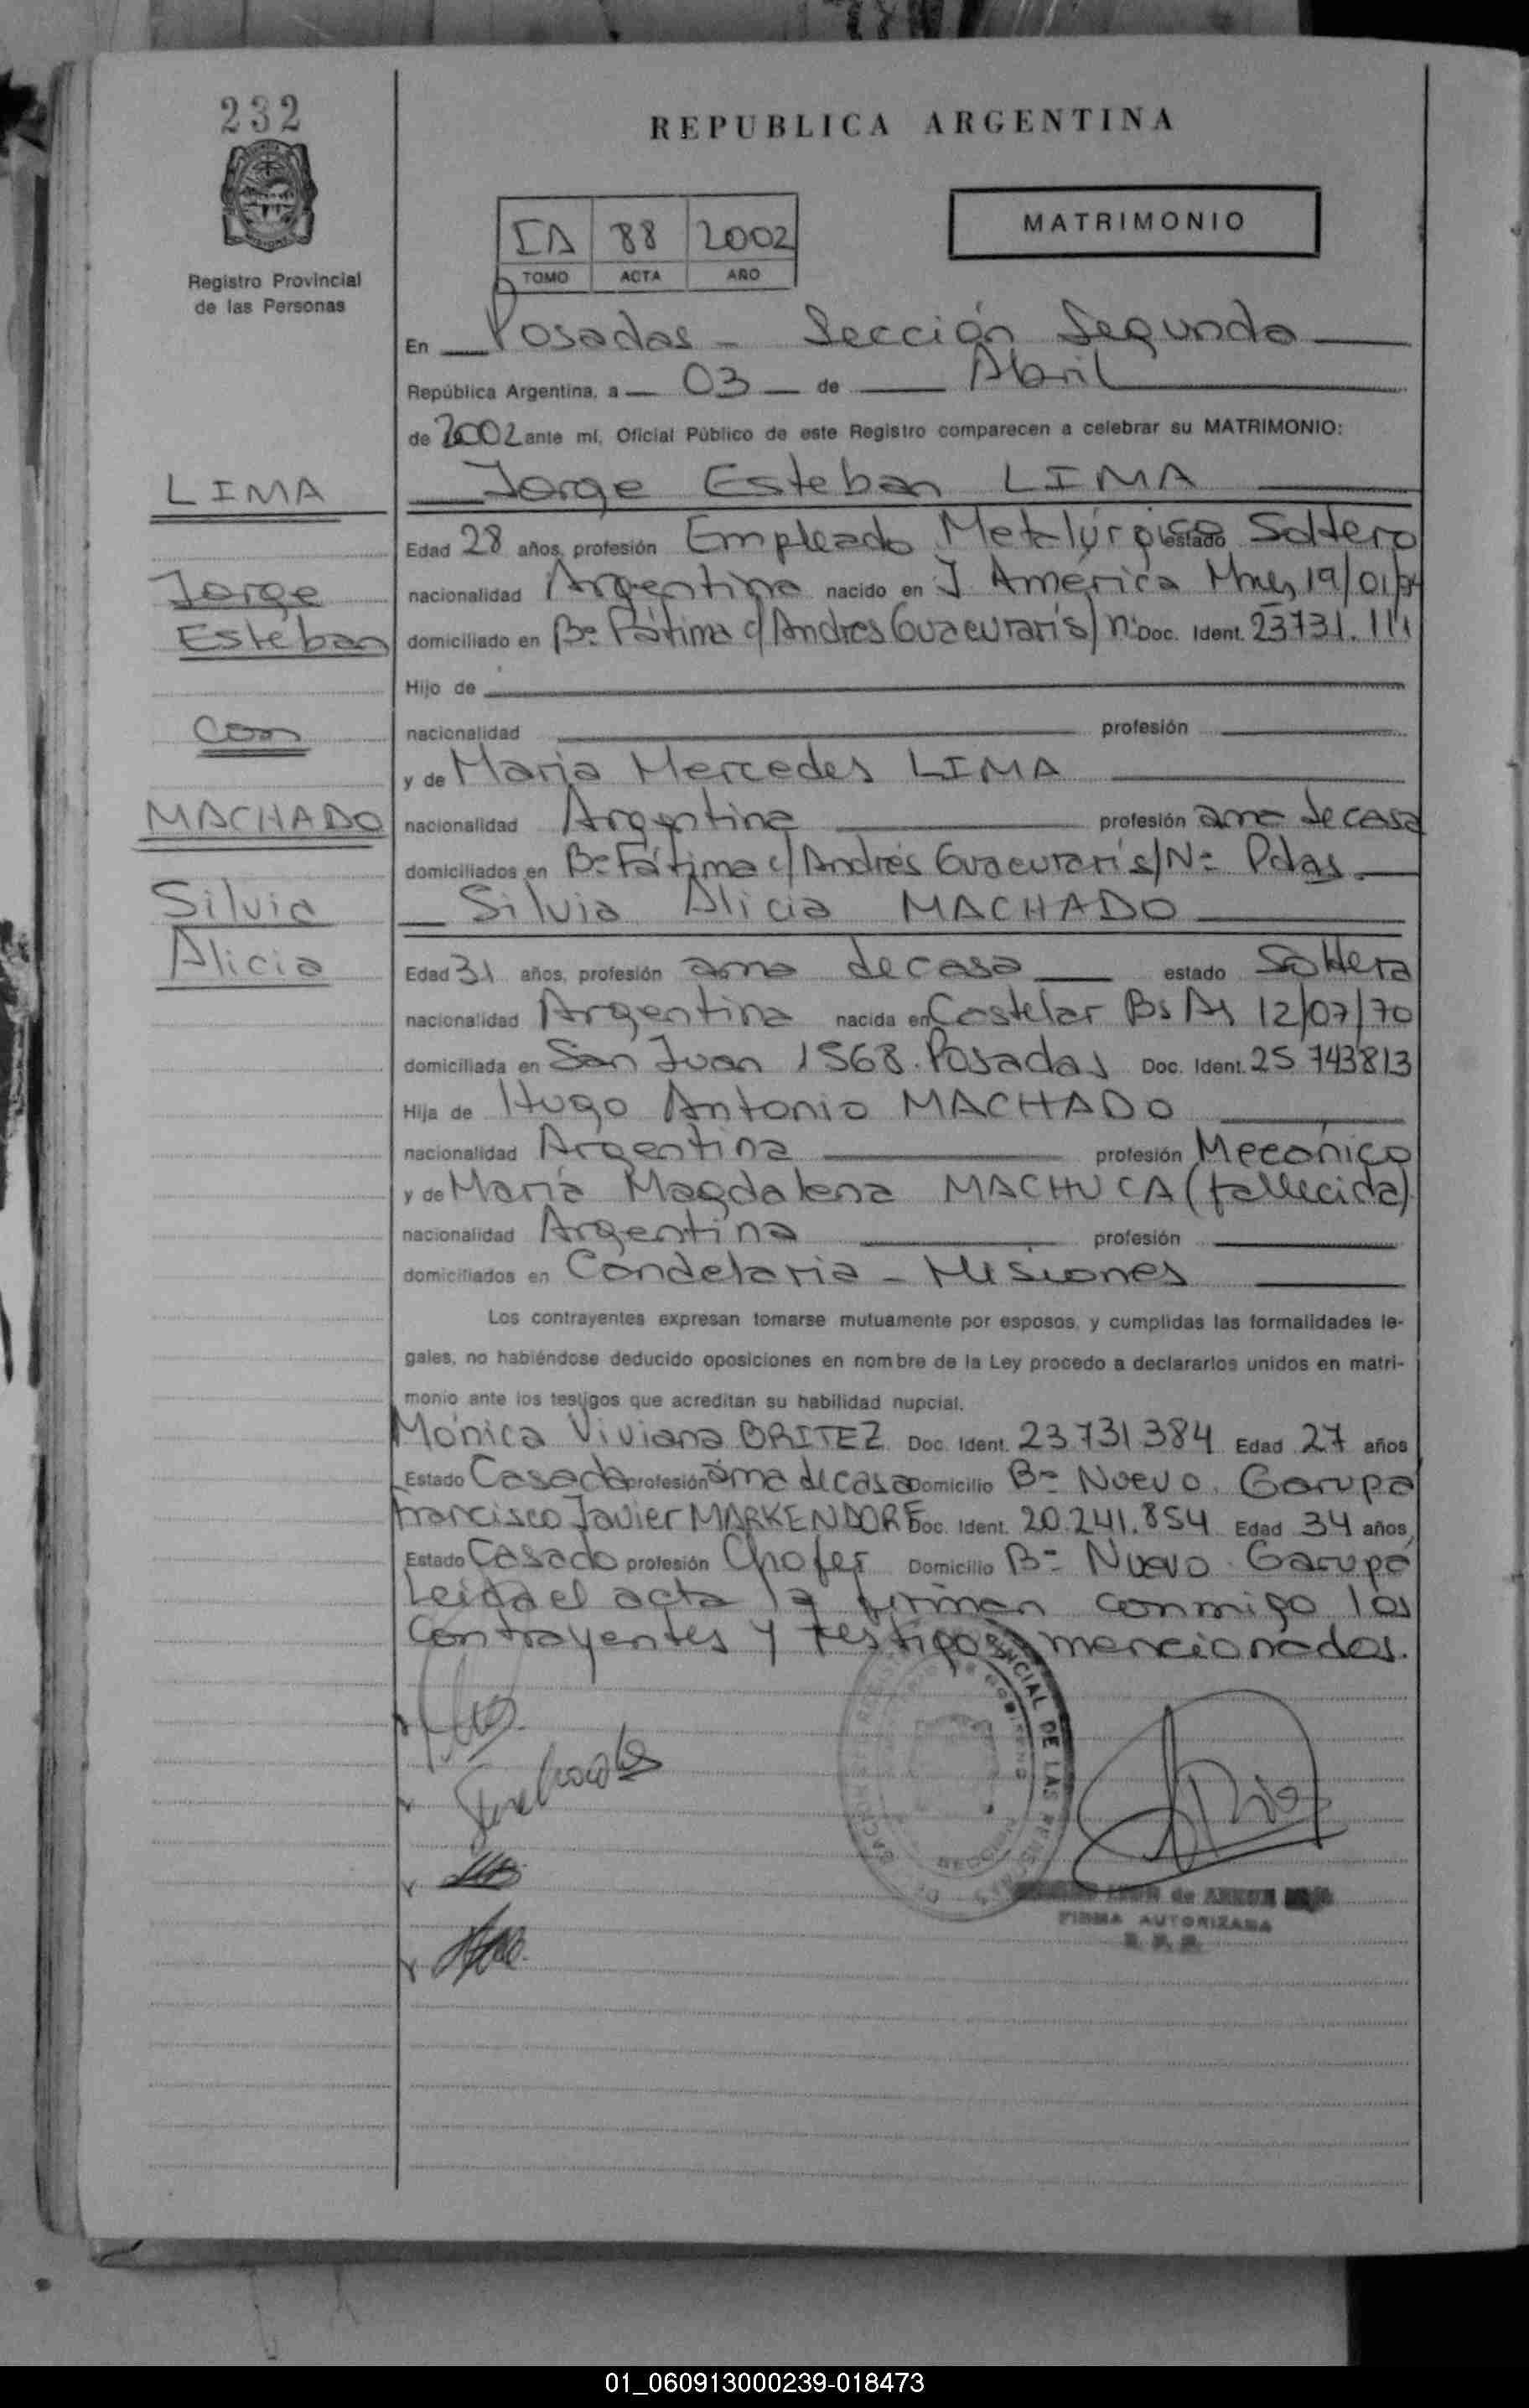 232
REPUBLICA ARGENTINA
MATRIMONIO
IA 88 2002
TOMO ACTA AÑO
Registro Provincial
de las Personas
En Posadas - Sección Segunda
República Argentina, a 03 de Abril
de 2002 ante mí, Oficial Público de este Registro comparecen a celebrar su MATRIMONIO:
LIMA
Jorge
Esteban
con
MACHADO
Silvia
Alicia
Jorge Esteban LIMA
Edad 28 años, profesión Empleado Metalúrgico estado Soltero
nacionalidad Argentina nacido en J. América Mnes 19/01/74
domiciliado en Bº Fátima c/Andres Guacurarí s/nº Doc. Ident. 23731.111
Hijo de
nacionalidad profesión
y de María Mercedes LIMA
nacionalidad Argentina profesión ama de casa
domiciliados en Bº Fátima c/Andrés Guacurarí s/Nº Pdas.
Silvia Alicia MACHADO
Edad 31 años, profesión ama de casa estado Soltera
nacionalidad Argentina nacida en Castelar Bs As 12/07/70
domiciliada en San Juan 1568. Posadas Doc. Ident. 25 743813
Hija de Hugo Antonio MACHADO
nacionalidad Argentina profesión Mecánico
y de María Magdalena MACHUCA (fallecida)
nacionalidad Argentina profesión
domiciliados en Candelaria - Misiones
Los contrayentes expresan tomarse mutuamente por esposos, y cumplidas las formalidades le-
gales, no habiéndose deducido oposiciones en nombre de la Ley procedo a declararlos unidos en matri-
monio ante los testigos que acreditan su habilidad nupcial.
Mónica Viviana BRITEZ Doc. Ident. 23731384 Edad 27 años
Estado Casada profesión ama de casa Domicilio Bº Nuevo. Garupá
Francisco Javier MARKENDORF Doc. Ident. 20.241.854 Edad 34 años,
Estado Casado profesión Chofer Domicilio Bº Nuevo. Garupá
Leída el acta la firman conmigo los
contrayentes y testigos mencionados.
NCIAL DE LAS PERS
FIRMA AUTORIZADA
R. P. P.
01_060913000239-018473